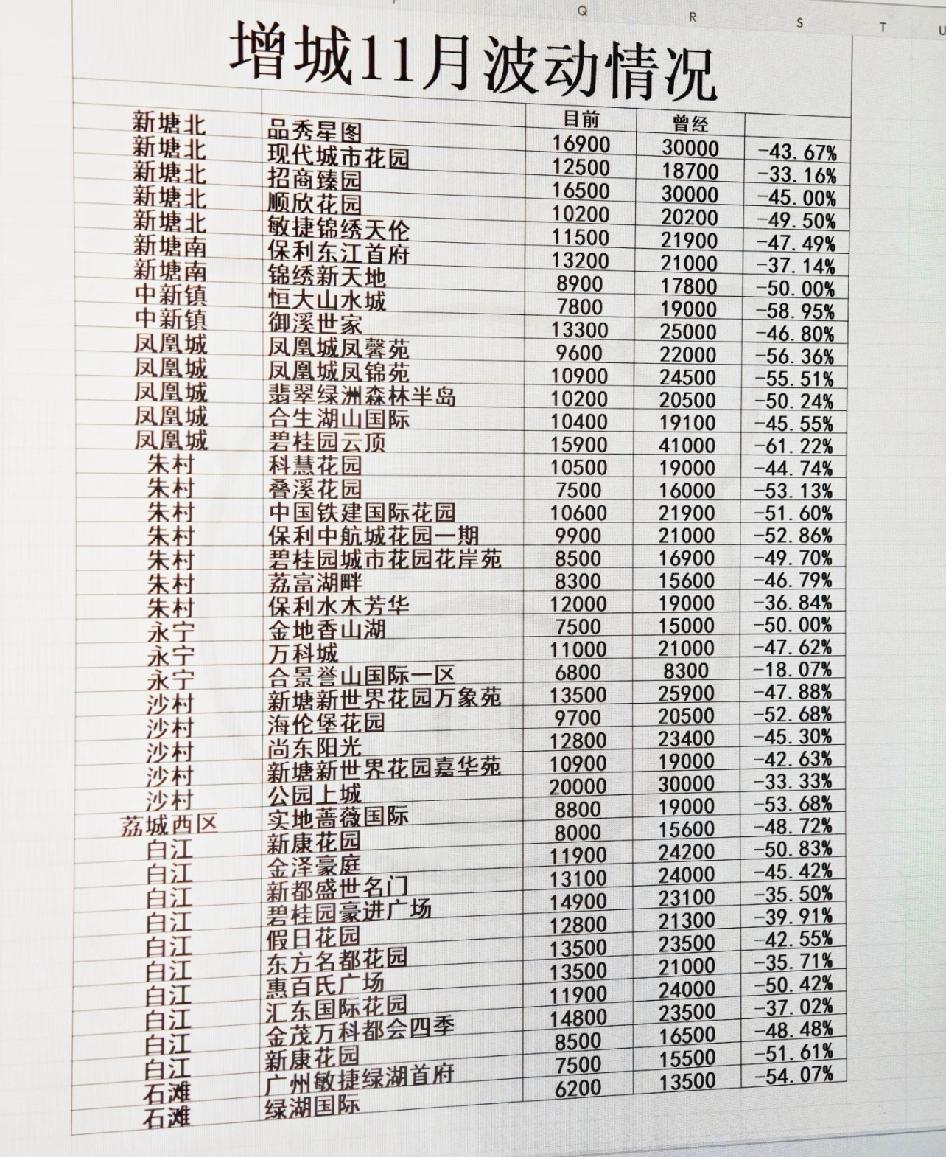 增城11月波动情况
目前 曾经
新塘北 品秀星图 16900 30000 -43.67%
新塘北 现代城市花园 12500 18700 -33.16%
新塘北 招商臻园 16500 30000 -45.00%
新塘北 顺欣花园 10200 20200 -49.50%
新塘北 敏捷锦绣天伦 11500 21900 -47.49%
新塘南 保利东江首府 13200 21000 -37.14%
新塘南 锦绣新天地 8900 17800 -50.00%
中新镇 恒大山水城 7800 19000 -58.95%
中新镇 御溪世家 13300 25000 -46.80%
凤凰城 凤凰城凤馨苑 9600 22000 -56.36%
凤凰城 凤凰城凤锦苑 10900 24500 -55.51%
凤凰城 翡翠绿洲森林半岛 10200 20500 -50.24%
凤凰城 合生湖山国际 10400 19100 -45.55%
凤凰城 碧桂园云顶 15900 41000 -61.22%
朱村 科慧花园 10500 19000 -44.74%
朱村 叠溪花园 7500 16000 -53.13%
朱村 中国铁建国际花园 10600 21900 -51.60%
朱村 保利中航城花园一期 9900 21000 -52.86%
朱村 碧桂园城市花园花岸苑 8500 16900 -49.70%
朱村 荔富湖畔 8300 15600 -46.79%
朱村 保利水木芳华 12000 19000 -36.84%
永宁 金地香山湖 7500 15000 -50.00%
永宁 万科城 11000 21000 -47.62%
永宁 合景誉山国际一区 6800 8300 -18.07%
沙村 新塘新世界花园万象苑 13500 25900 -47.88%
沙村 海伦堡花园 9700 20500 -52.68%
沙村 尚东阳光 12800 23400 -45.30%
沙村 新塘新世界花园嘉华苑 10900 19000 -42.63%
沙村 公园上城 20000 30000 -33.33%
荔城西区 实地蔷薇国际 8800 19000 -53.68%
白江 新康花园 8000 15600 -48.72%
白江 金泽豪庭 11900 24200 -50.83%
白江 新都盛世名门 13100 24000 -45.42%
白江 碧桂园豪进广场 14900 23100 -35.50%
白江 假日花园 12800 21300 -39.91%
白江 东方名都花园 13500 23500 -42.55%
白江 惠百氏广场 13500 21000 -35.71%
白江 汇东国际花园 11900 24000 -50.42%
白江 金茂万科都会四季 14800 23500 -37.02%
白江 新康花园 8500 16500 -48.48%
石滩 广州敏捷绿湖首府 7500 15500 -51.61%
石滩 绿湖国际 6200 13500 -54.07%
Q R S T U